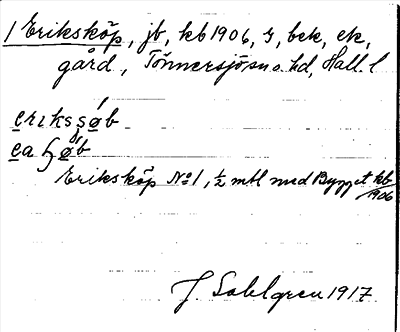 1 Eriksköp, jb, kb 1906, G, bek, ek,
gård, Tönnersjö sn o. hd, Hall. l
erıkssøb
ea øb
Eriksköp No 1, ½ mtl med Bygget kb 1906
J Sahlgren 1917